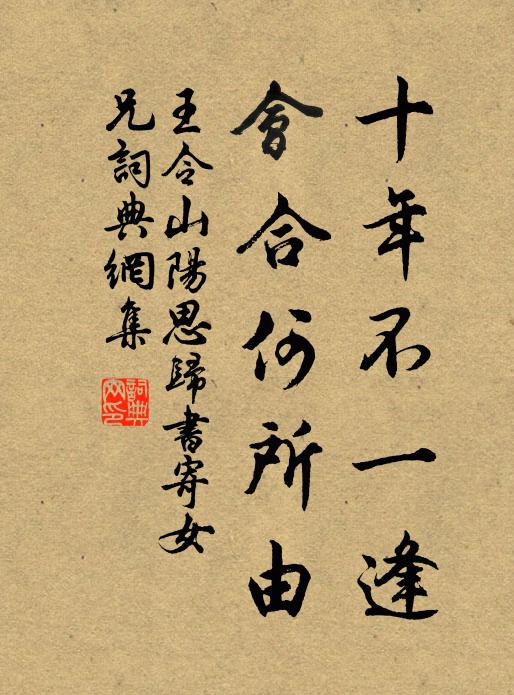 十年不一逢
會合何所由
王令山陽思歸書寄女
兄詞典網集
詞典網印